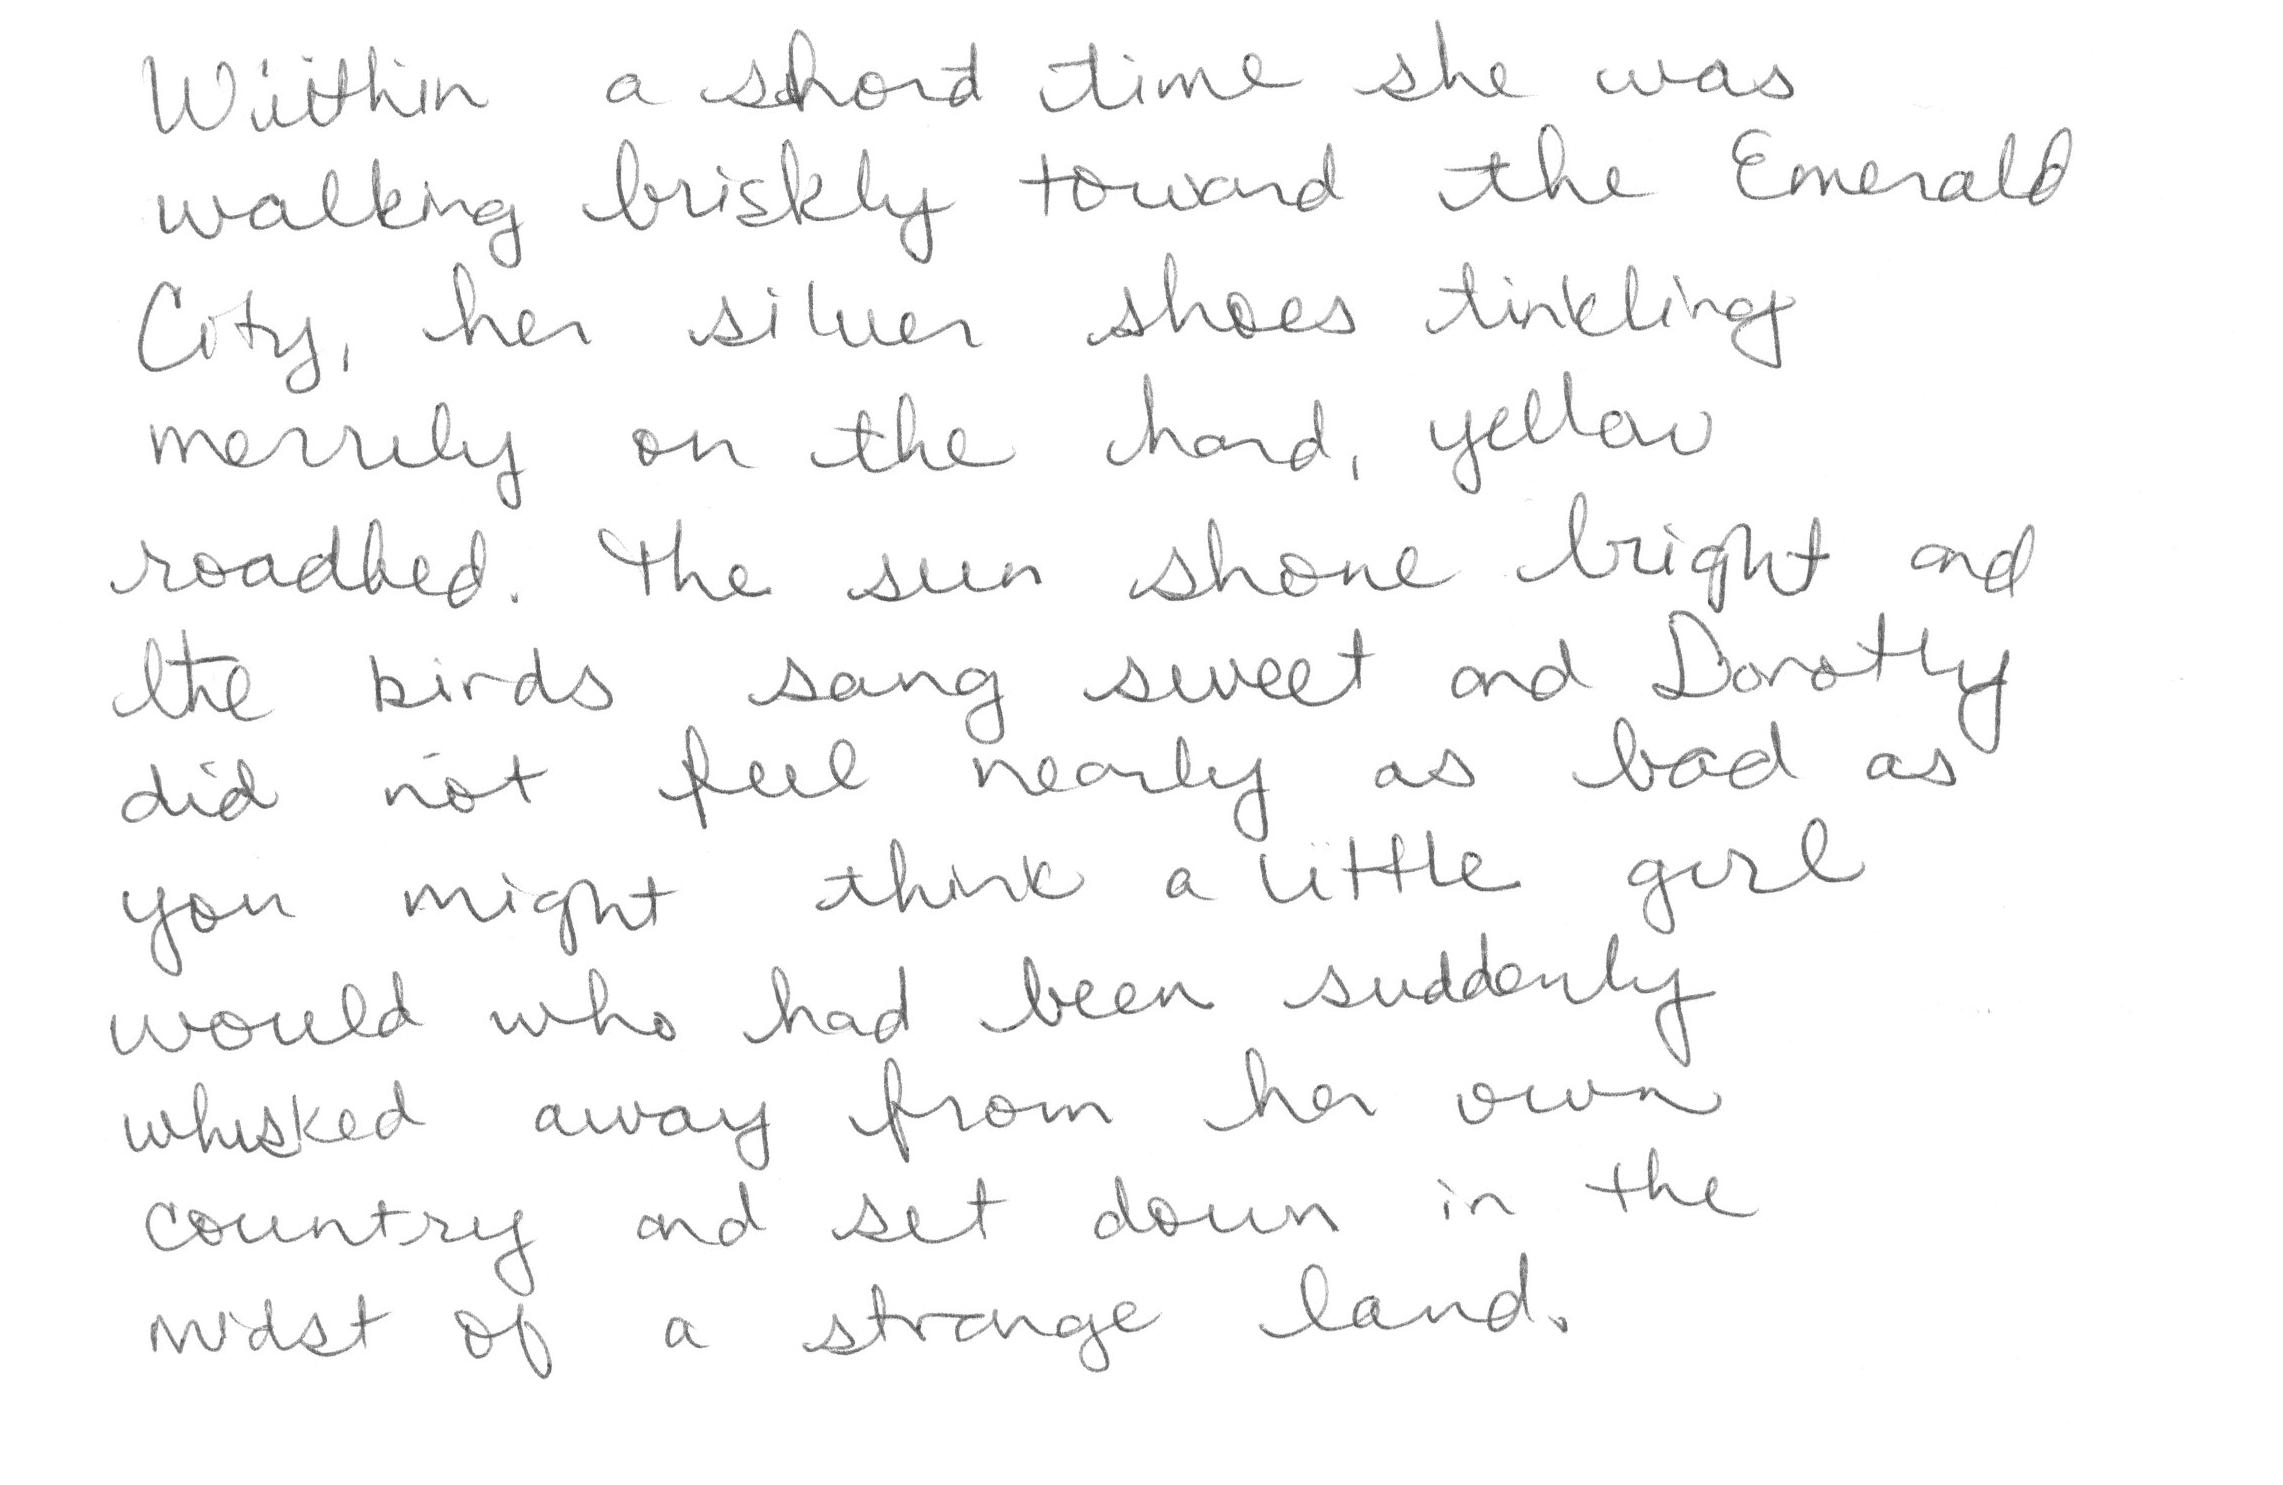 Within a short time she was
walking briskly toward the Emerald
City, her silver shoes tinkling
merrily on the hard, yellow
roadbed. The sun shone bright and
the birds sang sweet and Dorothy
did not feel nearly as bad as
you might think a little girl
would who had been suddenly
whisked away from her own
country and set down in the
midst of a strange land.